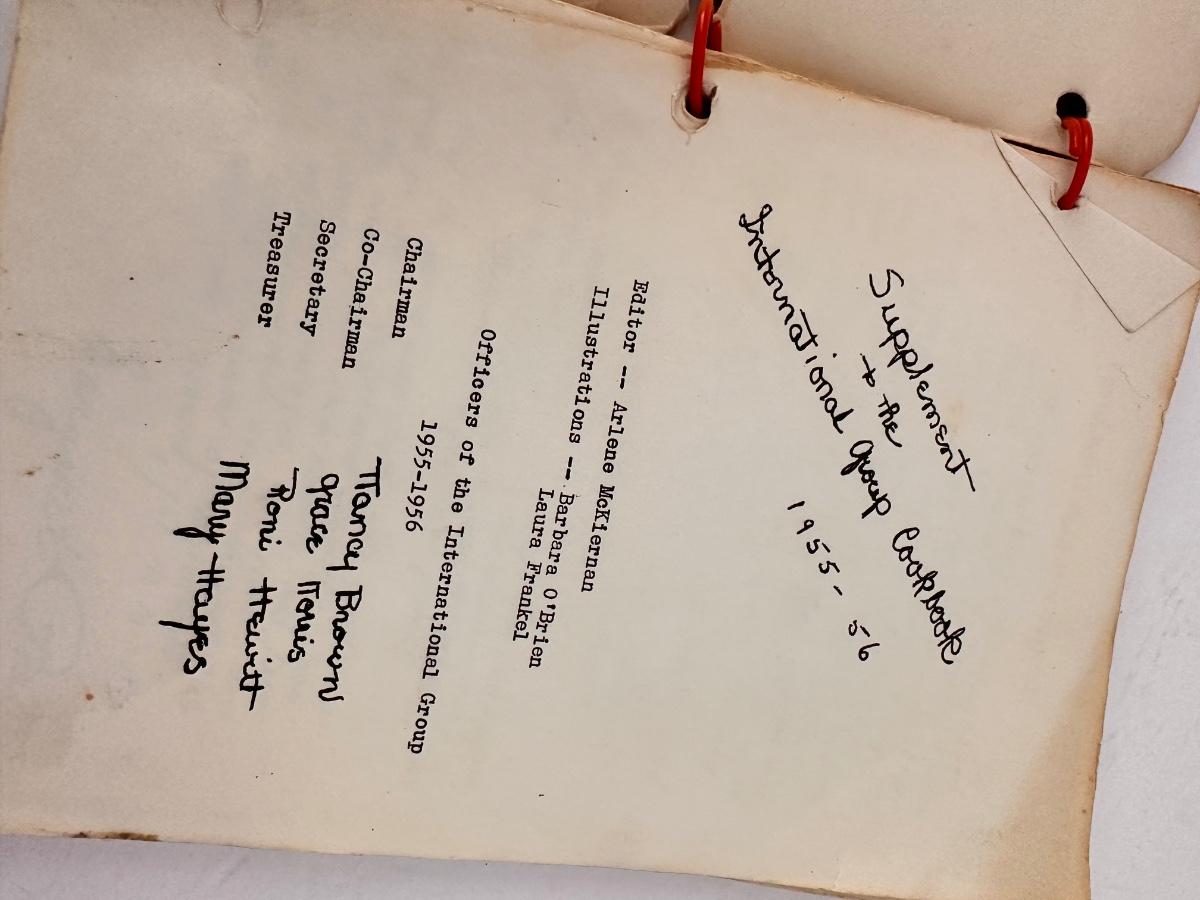 Supplement
to the
International Group Cookbook
1955-56
Editor -- Arlene McKiernan
Illustrations -- Barbara O'Brien
Laura Frankel
Officers of the International Group
1955-1956
Chairman Nancy Brown
Co-Chairman Grace
Secretary Roni Hewitt
Treasurer Mary Hayes